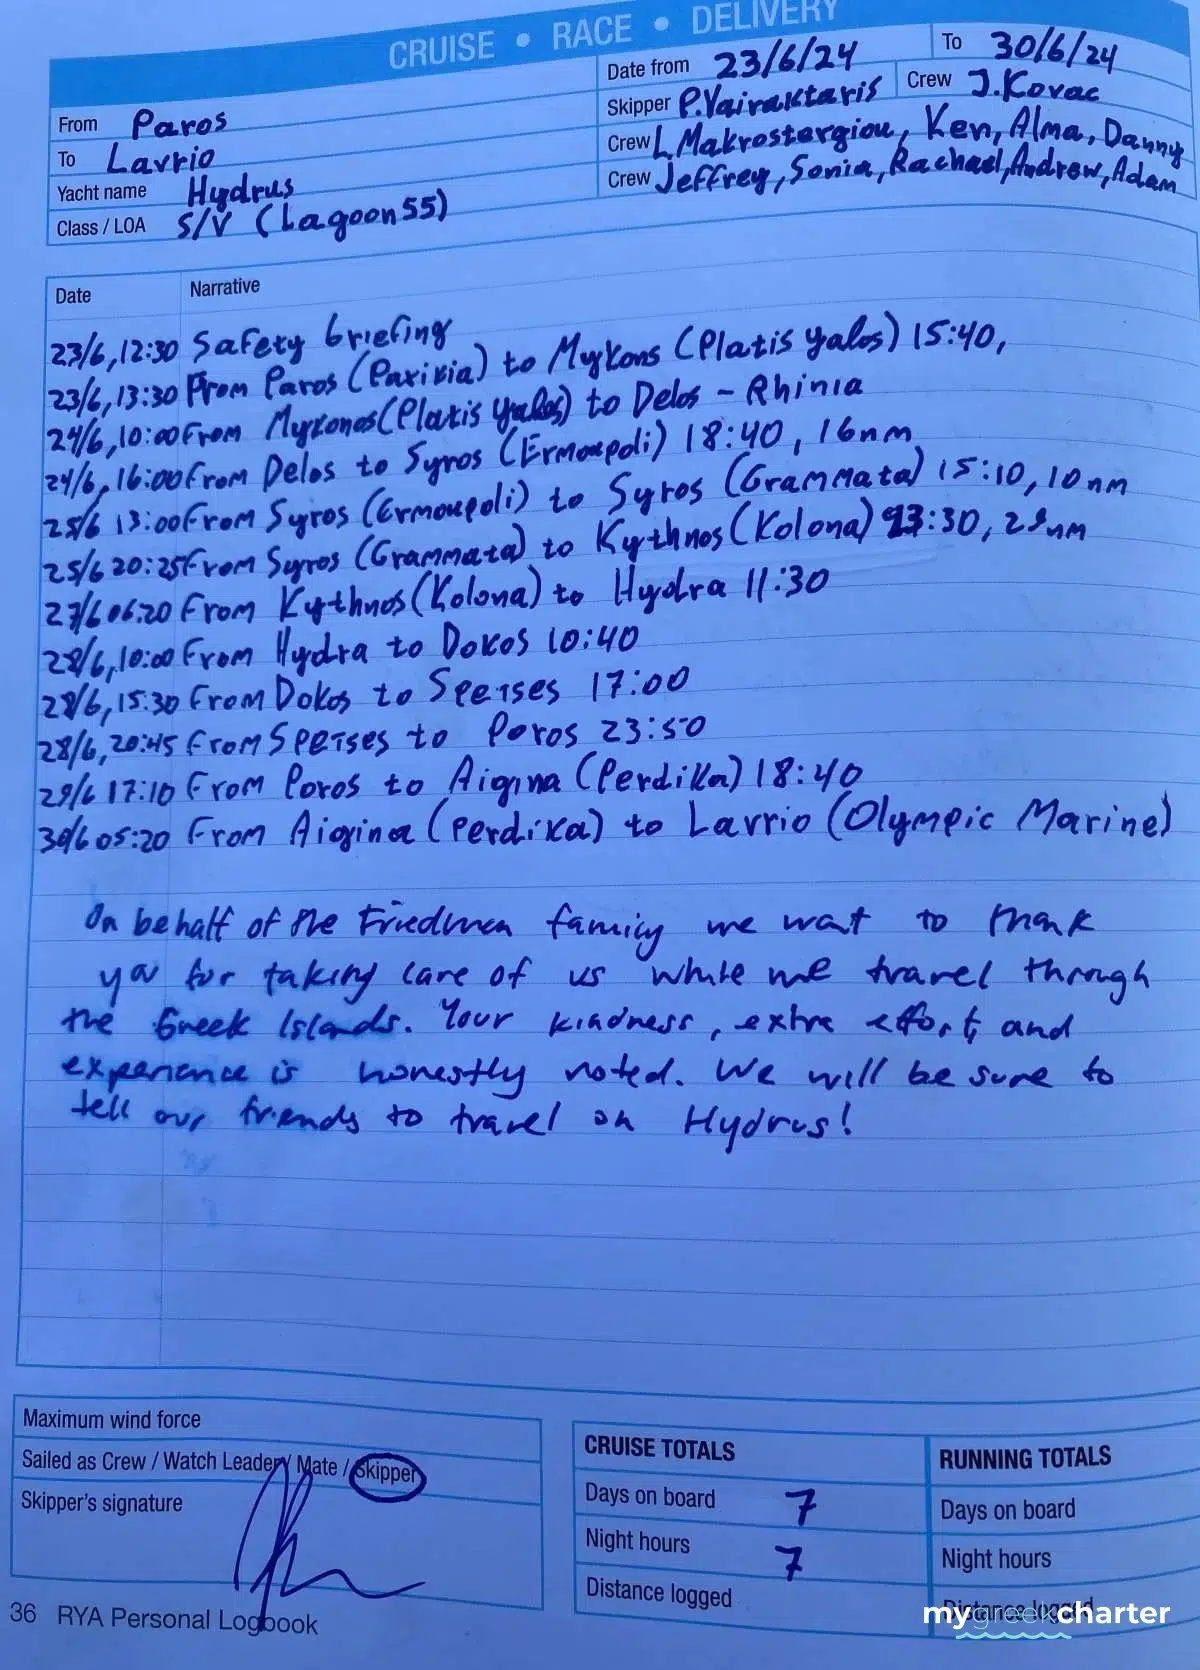 CRUISE • RACE • DELIVERY
From Paros
To Lavrio
Yacht name Hydrus
Class / LOA S/V (Lagoon 55)
Date from 23/6/24 To 30/6/24
Skipper P.Vairaktaris Crew J.Kovac
Crew L.Makrostergiou, Ken, Alma, Danny
Crew Jeffrey, Sonia, Rachael, Andrew, Adam
Date Narrative
23/6, 12:30 Safety briefing
23/6, 13:30 From Paros (Parikia) to Mykons (Platis yalos) 15:40,
24/6, 10:00 From Mykonos (Platis yalos) to Delos - Rhinia
24/6, 16:00 From Delos to Syros (Ermoupoli) 18:40, 16nm
25/6 13:00 From Syros (Ermoupoli) to Syros (Grammata) 15:10, 10nm
25/6 20:25 From Syros (Grammata) to Kythnos (Kolona) 23:30, 29nm
27/6 06:20 From Kythnos (Kolona) to Hydra 11:30
28/6, 10:00 From Hydra to Dokos 10:40
28/6, 15:30 From Dokos to Spetses 17:00
28/6, 20:45 From Spetses to Poros 23:50
29/6 17:10 From Poros to Aigina (Perdika) 18:40
30/6 05:20 From Aigina (Perdika) to Lavrio (Olympic Marine)
On behalf of the Friedman family we want to thank
you for taking care of us while we travel through
the Greek Islands. Your kindness, extra effort, and
experience is honestly noted. We will be sure to
tell our friends to travel on Hydrus!
Maximum wind force
Sailed as Crew / Watch Leader / Mate / Skipper
Skipper's signature
CRUISE TOTALS
Days on board 7
Night hours 7
Distance logged
RUNNING TOTALS
Days on board
Night hours
Distance logged
36 RYA Personal Logbook
mygreekcharter